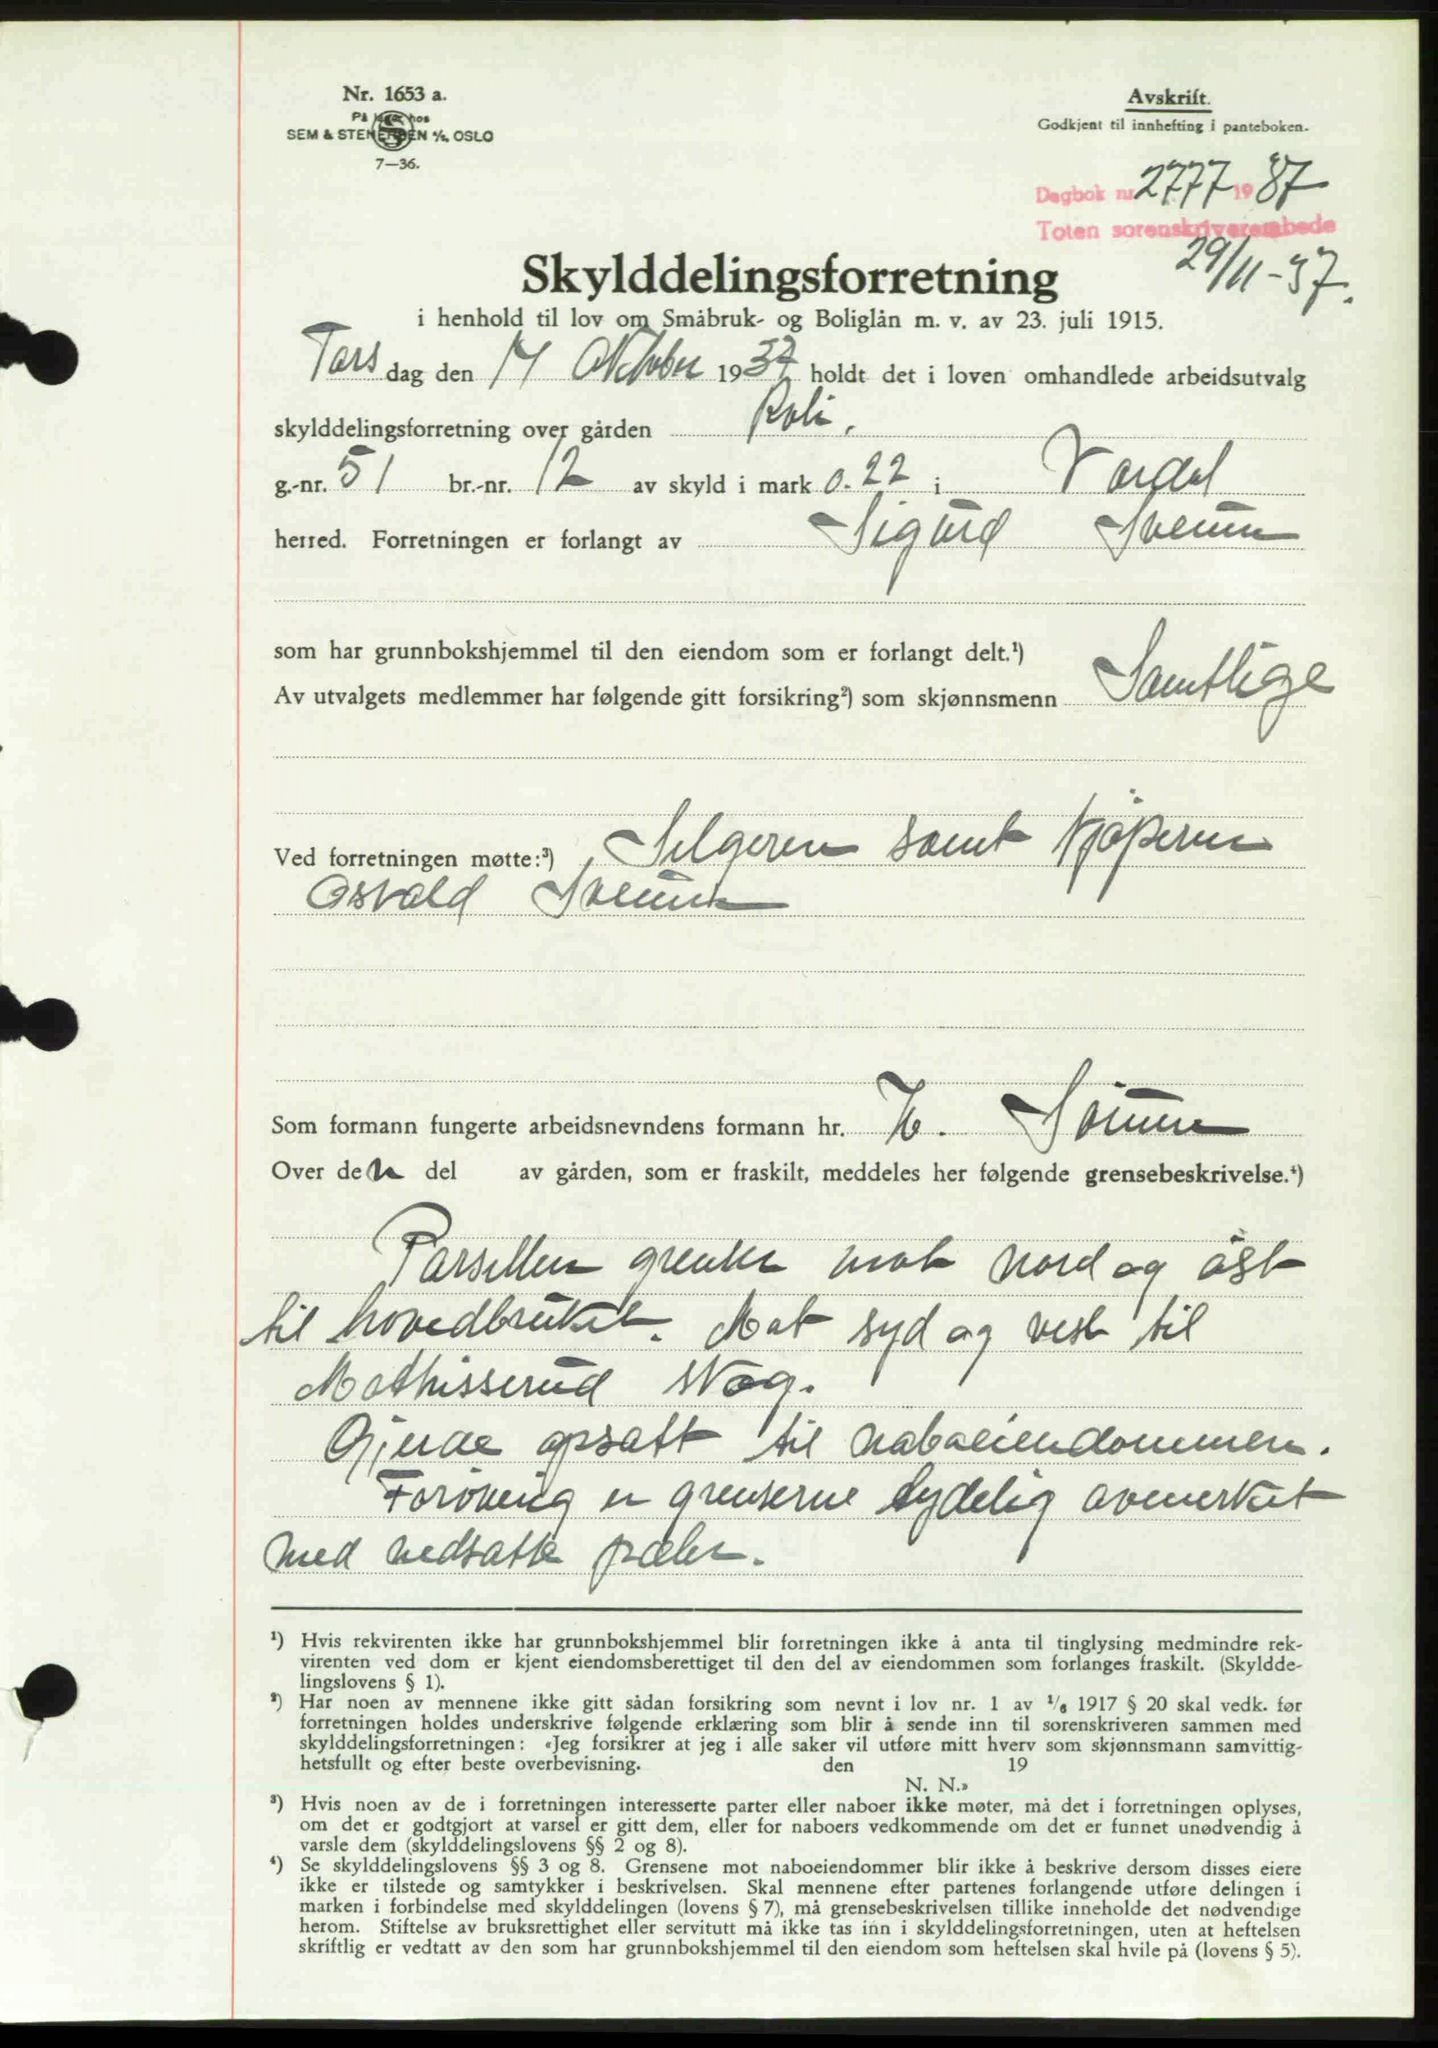 Nr. 1653 a.
På lager hos
SEM & STENERSEN A/S, OSLO
7—36.
Avskrift.
Godkjent til innhefting i panteboken.
Dagbok nr. 2777 1937
Toten sorenskriverembede
29/11-37.
Skylddelingsforretning
i henhold til lov om Småbruk- og Boliglån m. v. av 23. juli 1915.
Torsdag den 14 Oktober 1937 holdt det i loven omhandlede arbeidsutvalg
skylddelingsforretning over gården Roli.
g.-nr. 51 br.-nr. 12 av skyld i mark 0.22 i Vardal
herred. Forretningen er forlangt av Sigurd
som har grunnbokshjemmel til den eiendom som er forlangt delt.¹)
Av utvalgets medlemmer har følgende gitt forsikring²) som skjønnsmenn Samtlige
Ved forretningen møtte:³) Selgeren samt kjøperen
Osvald
Som formann fungerte arbeidsnevndens formann hr.
Over den del av gården, som er fraskilt, meddeles her følgende grensebeskrivelse.⁴)
Parsellen grenser mot nord og øst
til hovedbruket. Mot syd og vest til
Mathisserud skog.
Gjerde opsatt til naboeiendommen.
Forøvrig er grenserne tydelig avmerket
med nedsatte pæler.
¹) Hvis rekvirenten ikke har grunnbokshjemmel blir forretningen ikke å anta til tinglysing medmindre rek-
virenten ved dom er kjent eiendomsberettiget til den del av eiendommen som forlanges fraskilt. (Skyldde-
lingslovens § 1).
²) Har noen av mennene ikke gitt sådan forsikring som nevnt i lov nr. 1 av ¹/₆ 1917 § 20 skal vedk. før
forretningen holdes underskrive følgende erklæring som blir å sende inn til sorenskriveren sammen med
skylddelingsforretningen: «Jeg forsikrer at jeg i alle saker vil utføre mitt hverv som skjønnsmann samvittig-
hetsfullt og efter beste overbevisning. den 19
N. N.»
³) Hvis noen av de i forretningen interesserte parter eller naboer ikke møter, må det i forretningen oplyses,
om det er godtgjort at varsel er gitt dem, eller for naboers vedkommende om det er funnet unødvendig å
varsle dem (skylddelingslovens §§ 2 og 8).
⁴) Se skylddelingslovens §§ 3 og 8. Grensene mot naboeiendommer blir ikke å beskrive dersom disses eiere
ikke er tilstede og samtykker i beskrivelsen. Skal mennene efter partenes forlangende utføre delingen i
marken i forbindelse med skylddelingen (lovens § 7), må grensebeskrivelsen tillike inneholde det nødvendige
herom. Stiftelse av bruksrettighet eller servitutt må ikke tas inn i skylddelingsforretningen, uten at heftelsen
skriftlig er vedtatt av den som har grunnbokshjemmel til den eiendom som heftelsen skal hvile på (lovens § 5).